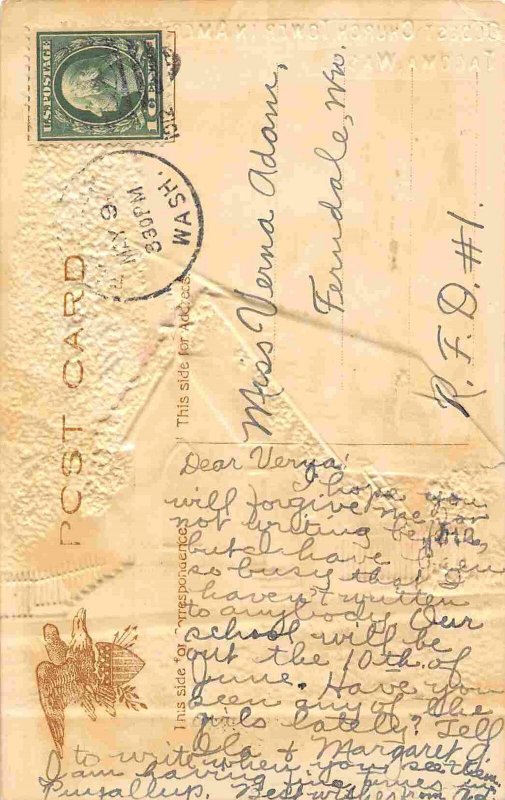 OLDEST CHURCH TOWER IN AM
TACOMA WASH
U.S. POSTAGE
1 CENT
MAY 9
830 PM
WASH.
POST CARD
This side for Address
Miss Verna Adam,
Ferndale, Wn.
R.F.D. #1.
This side for Correspondence
Dear Verna:
I hope you
will forgive me for
not writing before,
but I have been
so busy that I
haven't written
to anybody. Our
school will be
out the 10th of
June. Have you
seen any of the
girls lately? Tell
Ila & Margaret
to write when you see them.
I am having nice times in
Puyallup. Best wishes from